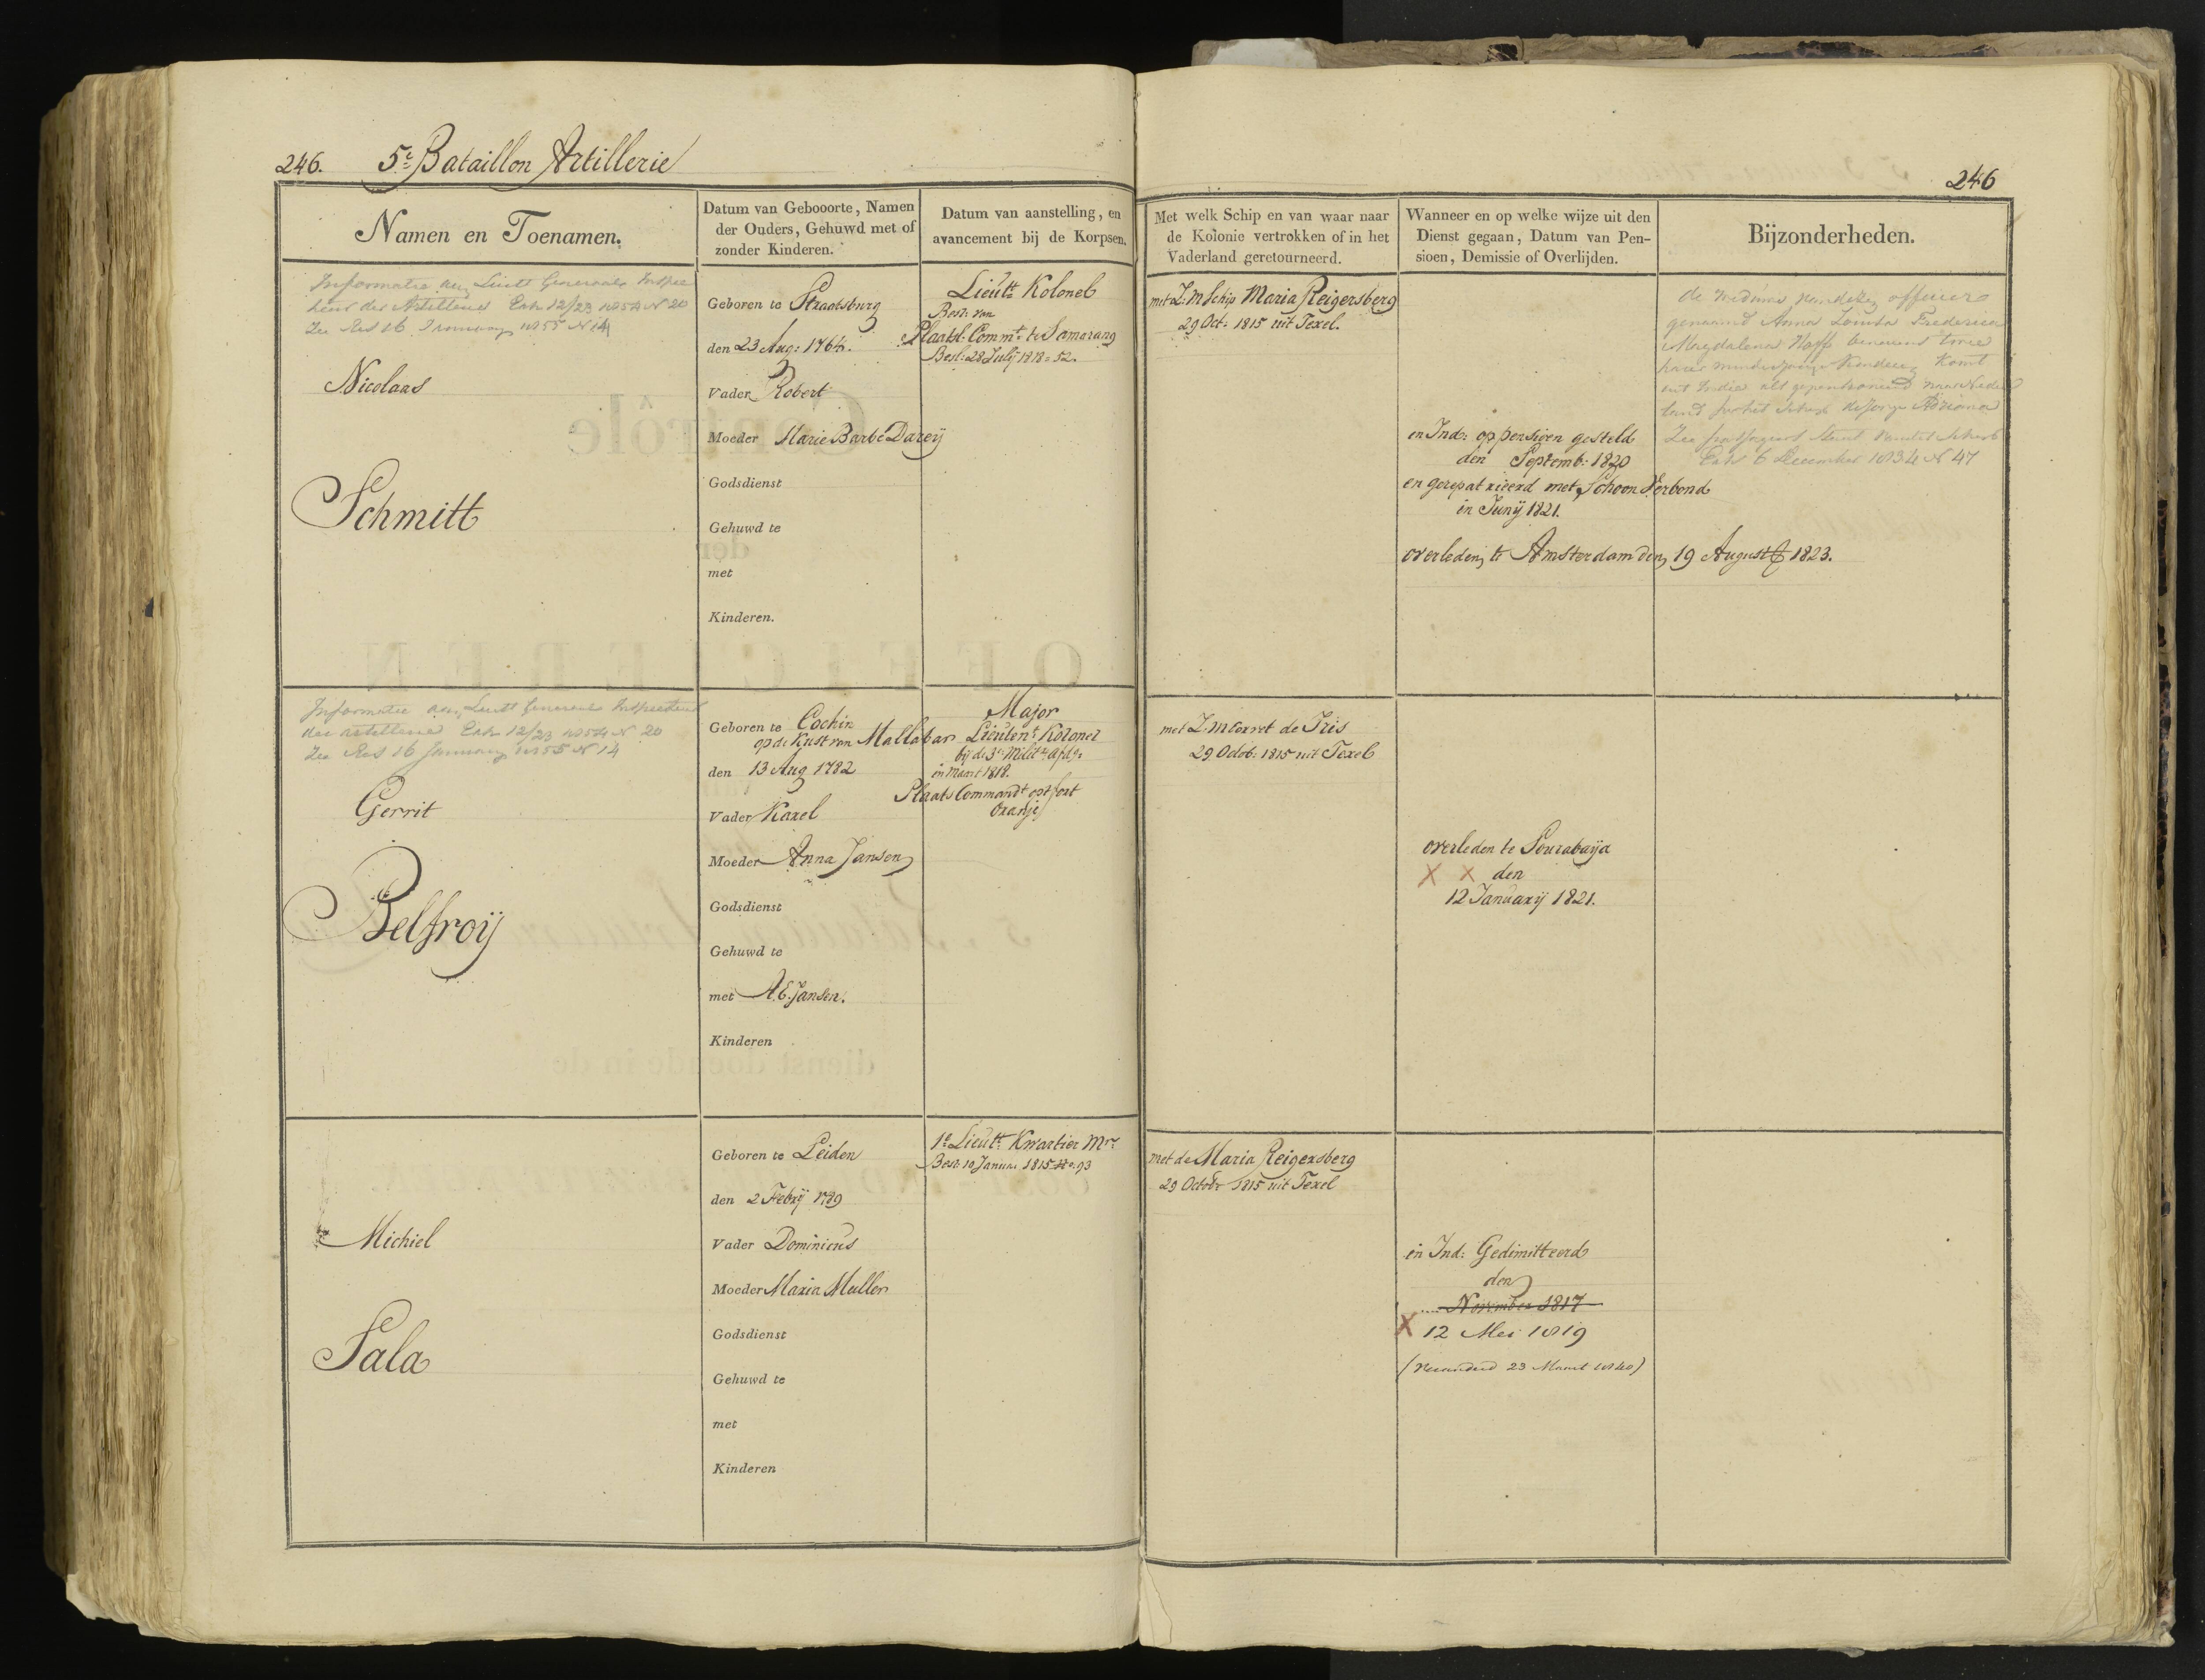 246. 5e Bataillon Artillerie
246
Namen en Toenamen.
Datum van Gebooorte, Namen
der Ouders, Gehuwd met of
zonder Kinderen.
Datum van aanstelling, en
avancement bij de Korpsen.
Met welk Schip en van waar naar
de Kolonie vertrokken of in het
Vaderland geretourneerd.
Wanneer en op welke wijze uit den
Dienst gegaan, Datum van Pen-
sioen, Demissie of Overlijden.
Bijzonderheden.
Informatie aan Luitt Generaal Inspec
teur der Artillerie Exh 12/23 1854 N 20
Zie Res 16 January 1855 N 14
Nicolaas
Schmitt
Geboren te Straatsburg
den 23 Aug: 1764.
Vader Robert
Moeder Marie Barbe Darcij
Godsdienst
Gehuwd te
met
Kinderen.
Lieutt Kolonel
Besl: van
Plaatsl: Commt te Samarang
Besl: 28 Julij 1818 = 52.
met Z:M Schip Maria Reigersberg
29 Oct: 1815 uit Texel.
en Ind: op pensioen gesteld
den Septemb: 1820
en gerepatrieerd met Schoon Verbond
in Junij 1821.
overleden te Amsterdam den 19 August 1823.
de weduwe van dezen officier
genaamd Anna Louisa Frederica
Magdalena Hoff benevens twee
harer minderjarige kinderen komt
uit Indie als gepensioneerd naar Neder
land het schip de Jonge Adriana
Zie
Exh 6 December 1834 N 47
Informatie aan Luitt Generaal Inspecteur
der artillerie Exh 12/23 1854 N 20
Zie Res 16 January 1855 N 14
Gerrit
Belfroij
Geboren te Cochin
op de Kust van Mallabar
den 13 Aug 1782
Vader Karel
Moeder Anna Jansen
Godsdienst
Gehuwd te
met A.E. Jansen.
Kinderen
Major
Lieutent Kolonel
bij de 3e Milite afd:
in Maart 1818.
Plaats Commandt op fort
Oranje
met Z.M Corvet de Iris
29 Octob: 1815 uit Texel
overleden te Sourabaija
X X den
12 Januarij 1821.
Michiel
Sala
Geboren te Leiden
den 2 Febrij 1789
Vader Dominicus
Moeder Maria Muller
Godsdienst
Gehuwd te
met
Kinderen
1e Lieutt Kwartier Mr
Besl: 10 Januar 1815 No. 93
met de Maria Reigersberg
29 Octobr 1815 uit Texel
in Ind: Gedimitteerd
den
.... November 1817
X 12 Mei 1819
(Veranderd 23 Maart 1840)